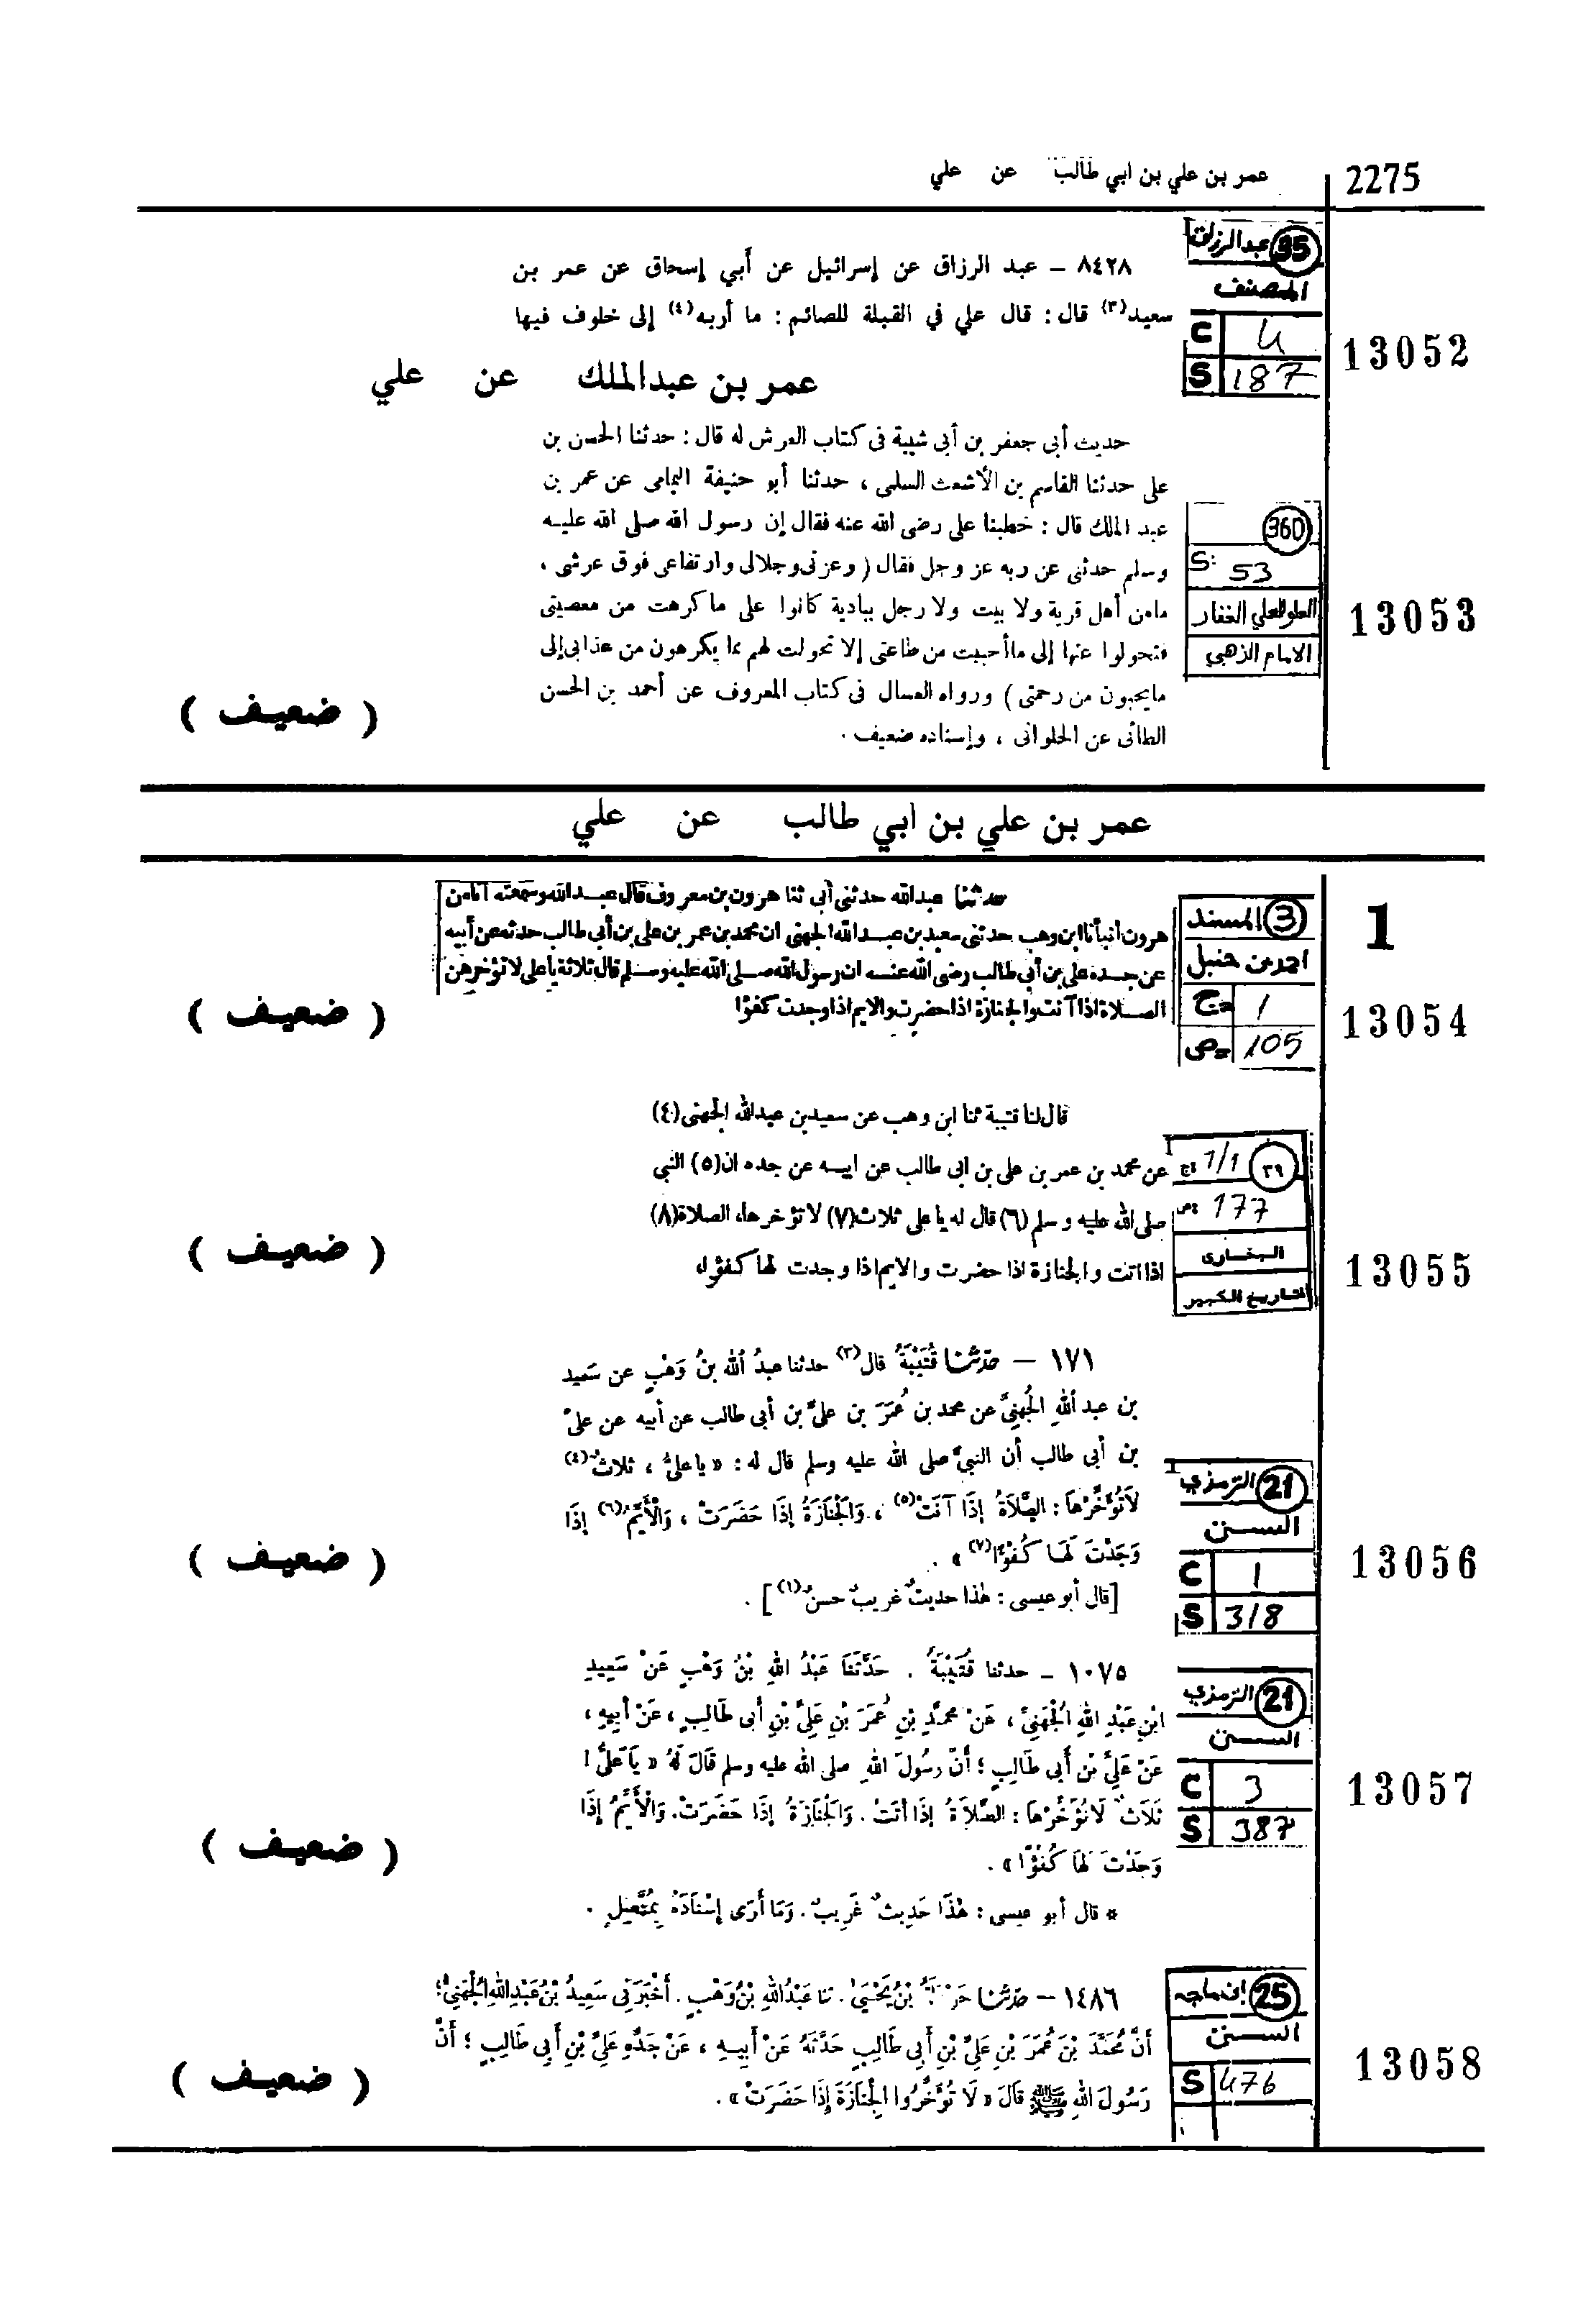 2275 عمر بن علي بن ابي طالب عن علي
35 عبدالرزاق
المصنف
C 4
S 187
13052
٨٤٢٨ – عبد الرزاق عن إسرائيل عن أبي إسحاق عن عمر بن
سعيد(٣) قال : قال علي في القبلة للصائم : ما أربه(٤) إلى خلوف فيها
عمر بن عبدالملك عن علي
360
S: 53
العلو للعلي الغفار
الامام الذهبي
13053
حديث أبى جعفر بن أبى شيبة فى كتاب العرش له قال : حدثنا الحسن بن
على حدثنا القاسم بن الأشعث السلمى ، حدثنا أبو حنيفة اليمامى عن عمر بن
عبد الملك قال : خطبنا على رضى الله عنه فقال إن رسول الله صلى الله عليه
وسلم حدثنى عن ربه عز وجل فقال ( وعزتى وجلالى وارتفاعى فوق عرشى ،
مامن أهل قرية ولا بيت ولا رجل ببادية كانوا على ماكرهت من معصيتى
فتحولوا عنها إلى ماأحببت من طاعتى إلا تحولت لهم مما يكرهون من عذابى إلى
مايحبون من رحمتى ) ورواه العسال فى كتاب المعروف عن أحمد بن الحسن
الطائى عن الحلوانى ، وإسناده ضعيف .
( ضعيف )
عمر بن علي بن ابي طالب عن علي
1
3 المسند
احمد بن حنبل
ج= 1
ص= 105
13054
حدثنا عبدالله حدثنى أبى ثنا هرون بن معروف قال عبدالله وسمعته أنا من
هرون أنبأنا ابن وهب حدثنى سعيد بن عبدالله الجهنى ان محمد بن عمر بن على بن أبى طالب حدثه عن أبيه
عن جده على بن أبى طالب رضى الله عنه ان رسول الله صلى الله عليه وسلم قال ثلاثة يا على لا تؤخرهن
الصلاة اذا آنت والجنازة اذا حضرت والايم اذا وجدت كفؤا
( ضعيف )
٣٩ ج= 1/1
ص= 177
البخارى
التاريخ الكبير
13055
قال لنا قتيبة ثنا ابن وهب عن سعيد بن عبدالله الجهنى (٤)
عن محمد بن عمر بن على بن ابى طالب عن ابيه عن جده ان (٥) النبى
صلى الله عليه وسلم (٦) قال له يا على ثلاث (٧) لا تؤخرها، الصلاة (٨)
اذا اتت والجنازة اذا حضرت والايم اذا وجدت لها كفؤا،
( ضعيف )
21 الترمذي
السنن
C 1
S 318
13056
١٧١ – حدثنا قُتَيْبَةُ قال(٣) حدثنا عبدُ اللهِ بنُ وَهْبٍ عن سَعِيد
بن عبد اللهِ الجُهَنِيِّ عن محمد بن عُمَرَ بن عليِّ بن أبى طالب عن أبيه عن علىِّ
بن أبى طالب أن النبيَّ صلى الله عليه وسلم قال له : « يا علىُّ ، ثلاثٌ(٤)
لاَتُؤَخِّرْهَا : الصَّلاَةُ إذَا آنَتْ(٥) ، وَالْجَنَازَةُ إذَا حَضَرَتْ ، وَالْأَيِّمُ(٦) إذَا
وَجَدْتَ لَهَا كُفْؤًا(٧) » .
[قال أبو عيسى : هٰذا حديثٌ غريبٌ حسنٌ(١)] .
( ضعيف )
21 الترمذي
السنن
C 3
S 387
13057
١٠٧٥ – حدثنا قُتَيْبَةُ . حَدَّثَنَا عَبْدُ اللهِ بْنُ وَهْبٍ عَنْ سَعِيدِ
ابْنِ عَبْدِ اللهِ الْجُهَنِيِّ ، عَنْ محمَّدِ بْنِ عُمَرَ بْنِ عَلِيِّ بْنِ أبى طَالِبٍ ، عَنْ أبِيهِ ،
عَنْ عَلِيِّ بْنِ أَبى طَالِبٍ ؛ أنَّ رسُولَ اللهِ صلى الله عليه وسلم قَالَ لَهُ « يَا عَلىُّ !
ثَلَاثٌ لَا تُؤَخِّرْهَا : الصَّلَاةُ إذَا أتَتْ . وَالْجَنَازَةُ إذَا حَضَرَتْ. وَالْأَيِّمُ إذَا
وَجَدْتَ لَهَا كُفُؤًا » .
* قال أبو عيسى : هٰذَا حَدِيثٌ غَرِيبٌ . وَمَا أَرَى إسْنَادَهُ بِمُتَّصِلٍ .
( ضعيف )
25 إبن ماجه
السنن
S 476
13058
١٤٨٦ – حدثنا حَرْمَلَةُ بْنُ يَحْيَىٰ . ثنا عَبْدُاللهِ بْنُ وَهْبٍ . أَخْبَرَنِى سَعِيدُ بْنُ عَبْدِاللهِ الْجُهَنِىُّ ؛
أَنَّ مُحَمَّدَ بْنَ عُمَرَ بْنِ عَلِيِّ بْنِ أَبِى طَالِبٍ حَدَّثَهُ عَنْ أَبِيهِ ، عَنْ جَدِّهِ عَلِيِّ بْنِ أَبِى طَالِبٍ ؛ أَنَّ
رَسُولَ اللهِ ﷺ قَالَ « لَا تُؤَخِّرُوا الْجِنَازَةَ إِذَا حَضَرَتْ » .
( ضعيف )